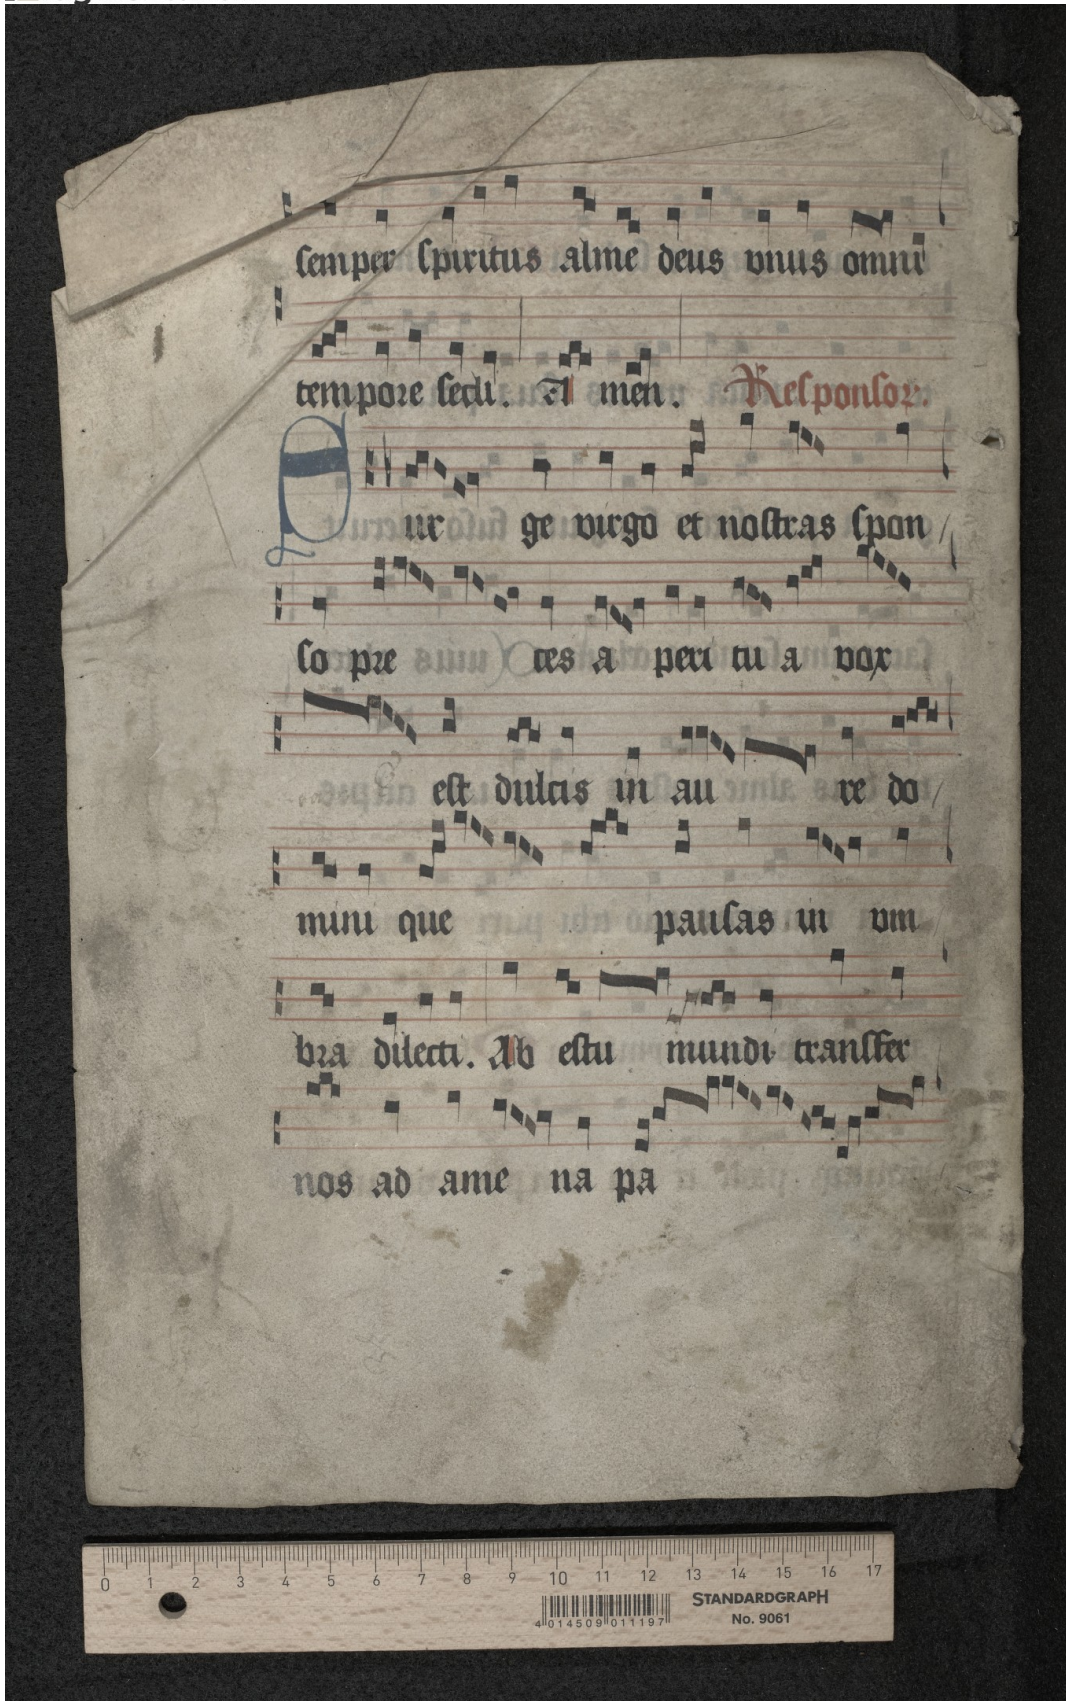 semper spiritus alme deus vnus omni
tempore secli. A men. Responsor:
ur ge virgo et nostras spon /
so pre ces a peri tu a vox
est dulcis in au re do /
mini que pausas in vm
bra dilecti. Ab estu mundi transfer
nos ad ame na pa
0 1 2 3 4 5 6 7 8 9 10 11 12 13 14 15 16 17
STANDARDGRAPH
No. 9061
4 014509 011197